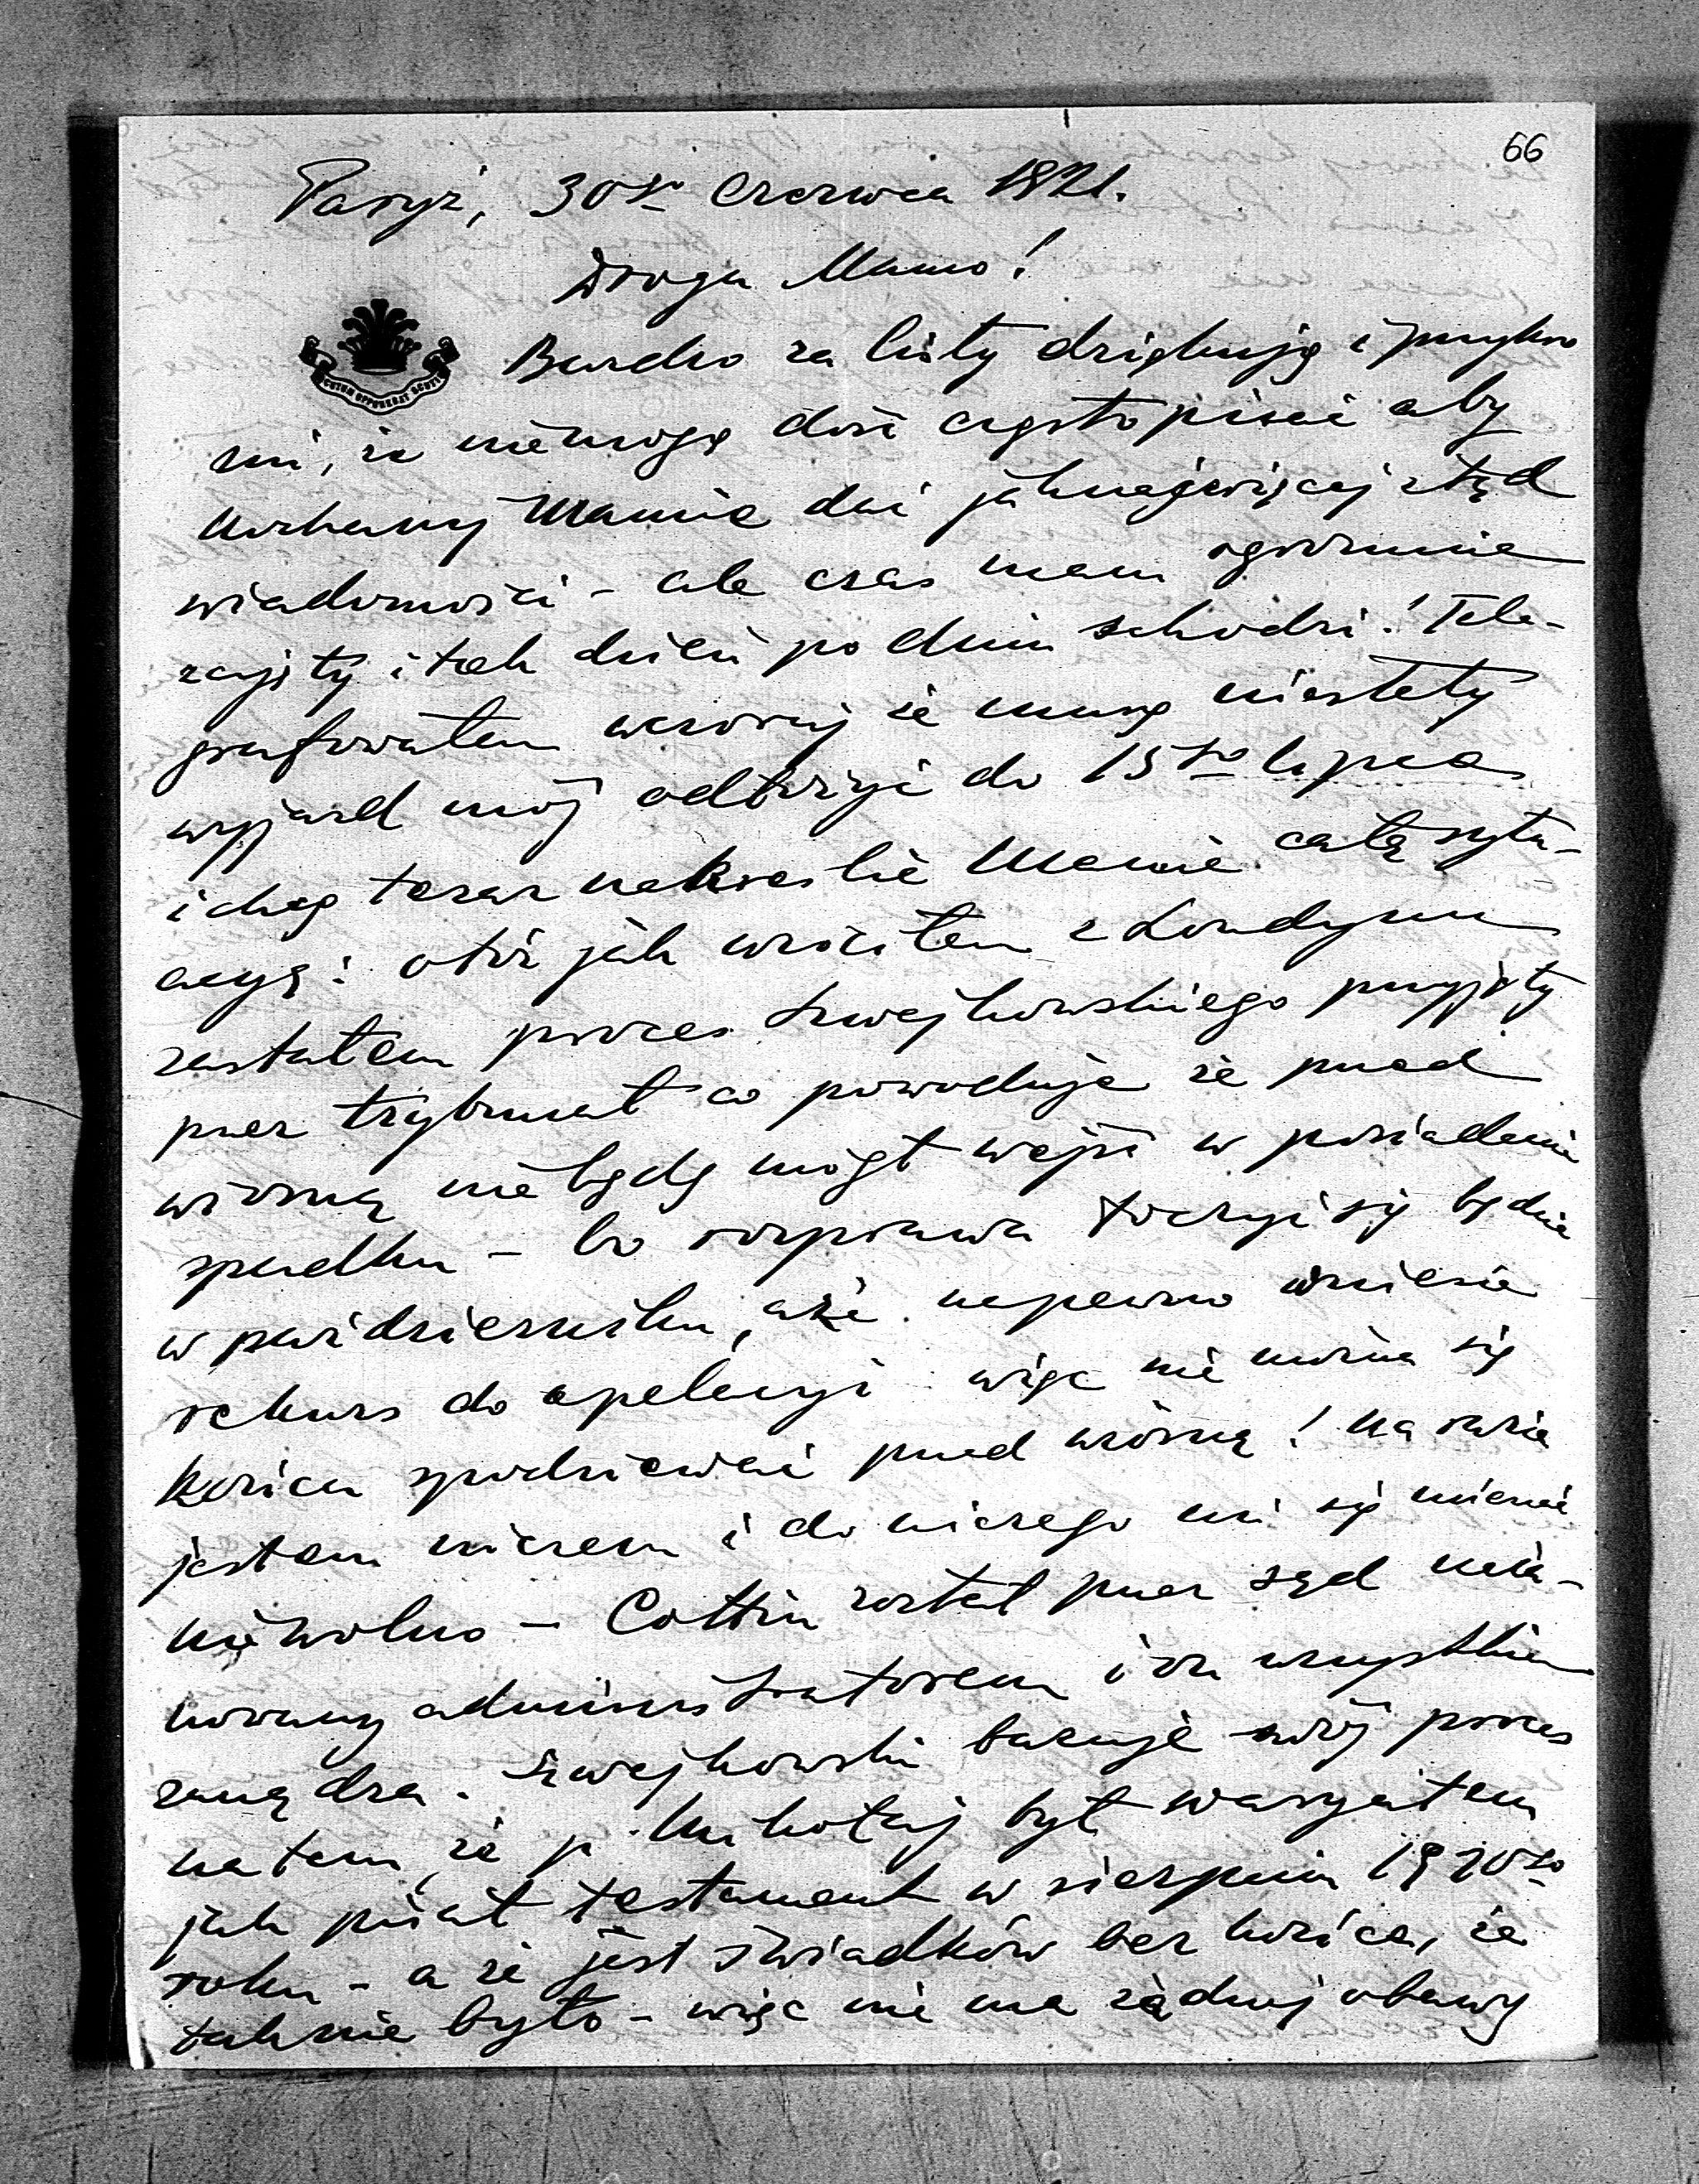 66
Paryż, 30go Czerwca 1921.
Droga Mamo!
Bardzo za listy dziękuję i przykro
mi, że niemogę dość często pisać aby
kochanej Mamie dać jaknajwięcej ztąd
wiadomości - ale czas mam ogromnie
zajęty i tak dzień po dniu schodzi! Tele-
grafowałem wczoraj że muszę niestety
wyjazd mój odłożyć do 15go lipca
i chcę teraz nakreślić Mamie całą sytu-
acyę: otóż jak wróciłem z Londynu
zastałem proces Szwejkowskiego przyjęty
przez trybunał co powoduje że przed
wiosną nie będę mógł wejść w posiadanie
spadku - bo rozprawa toczyć się będzie
w październiku, a że napewno wniesie
rekurs do apelacyi więc nie można się
końca spodziewać przed wiosną! Na razie
jestem niczem i do niczego mi się mieszać
niewolno - Cottin został przez sąd mia-
nowany administratorem i on wszystkiem
zarządza. Szwejkowski bazuje swój proces
na tem, że p. Mikołaj był waryatem
jak pisał testament w sierpniu 1920go
roku - a że jest świadków bez końca, że
tak nie było - więc nie ma żadnej obawy